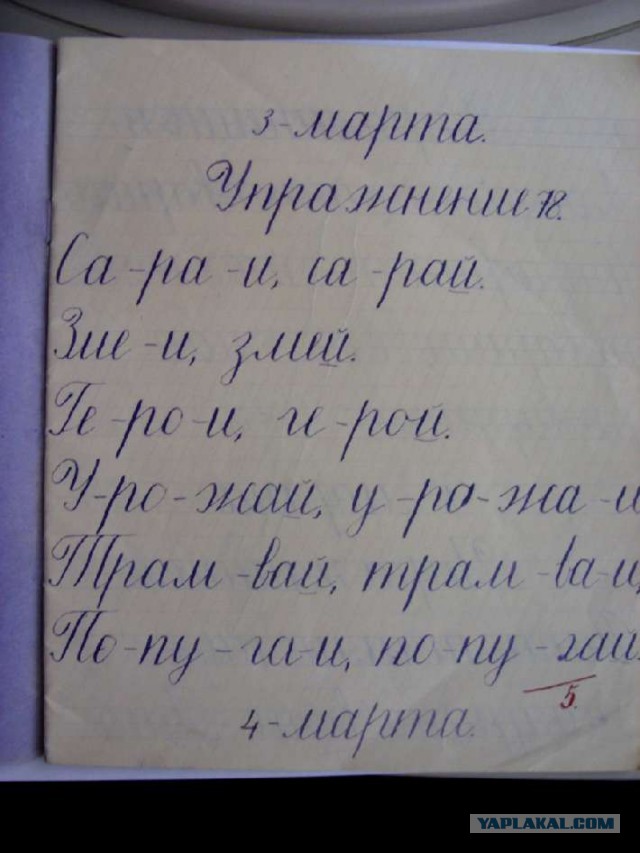 3-марта.
Упражнение 78.
Са-ра-и, са-рай.
Зме-и, змей.
Ге-ро-и, ге-рой.
У-ро-жай, у-ро-жа-и
Трам-вай, трам-ва-и,
По-пу-га-и, по-пу-гай.
5.
4-марта.
YAPLAKAL.COM